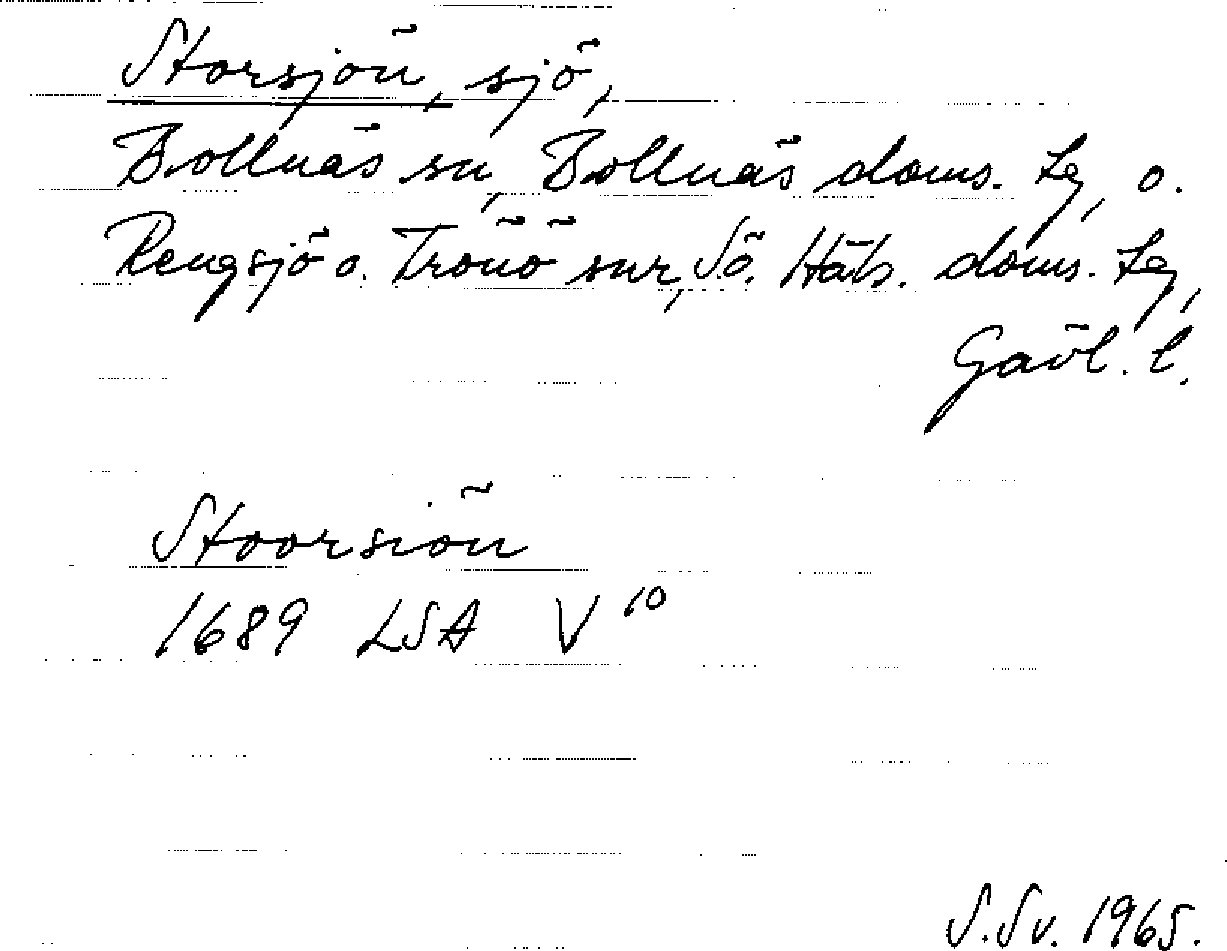 Storsjön, sjö,
Bollnäs sn, Bollnäs doms. tg, o.
Rengsjö o. Trönö snr, Sö. Häls. doms. tg,
Gävl. l.
Stoorsiön
1689 LSA V 10
S.Sv. 1965.